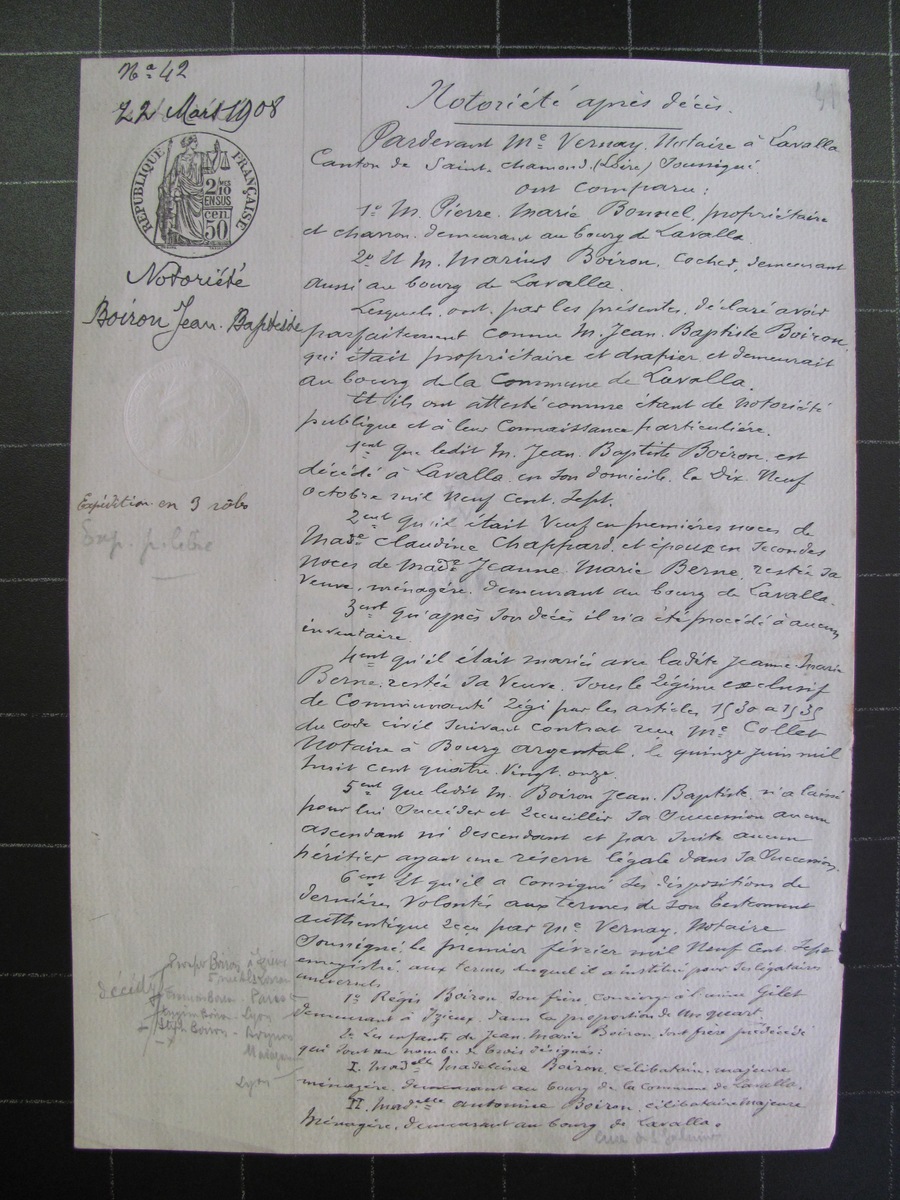 Nº 42
22 Mars 1908
RÉPUBLIQUE FRANÇAISE
2/10 EN SUS
50 cen
Notoriété
Boiron Jean. Baptiste
Expédition en 3 rôles
décédé
Lyon
Notoriété après décès.
Pardevant Mᵉ Vernay, Notaire à Lavalla
Canton de Saint-Chamond (Loire) Soussigné
ont comparu :
1º M. Pierre Marie Bonnel, propriétaire
et charron demeurant au bourg de Lavalla
2º Et M. Marius Boiron, cocher, demeurant
aussi au bourg de Lavalla.
Lesquels ont, par les présentes, déclaré avoir
parfaitement connu M. Jean. Baptiste Boiron,
qui était propriétaire et drapier et demeurait
au bourg de la Commune de Lavalla.
Et ils ont attesté comme étant de notoriété
publique et à leur Connaissance particulière.
1ent que ledit M. Jean. Baptiste Boiron, est
décédé à Lavalla en son domicile le Dix Neuf
octobre mil Neuf Cent. Sept.
2ent qu'il était Veuf en premières noces de
Made Claudine Chappard, et époux en Secondes
Noces de Made Jeanne Marie Berne, restée sa
Veuve, ménagère, demeurant au bourg de Lavalla.
3ent qu'après son décès il n'a été procédé à aucun
inventaire.
4ent qu'il était marié avec ladite Jeanne. Marie
Berne, restée sa Veuve. Sous le Régime exclusif
de Communauté Régi par les articles 1530 à 1535
du Code civil Suivant contrat reçu Mᵉ Collet
Notaire à Bourg argental, le quinze juin mil
huit cent quatre. Vingt. onze.
5ent que ledit M. Boiron Jean. Baptiste n'a laissé
pour lui Succéder et Recueillir sa Succession aucun
ascendant ni descendant et par Suite aucun
héritier ayant une réserve légale dans sa Succession
6ent Et qu'il a Consigné ses dispositions de
dernières Volontés aux termes de son testament
authentique Reçu par Mᵉ Vernay, Notaire
Soussigné, le premier février mil Neuf Cent Sept
enregistré, aux termes duquel il a institué pour ses légataires
universels
1º Régis Boiron son frère, concierge à l'usine Gilet
demeurant à Izieux, dans la proportion de un quart.
2º Les enfants de Jean. Marie Boiron, son frère prédécédé
qui sont au nombre de trois désignés :
I. Madelle Madeleine Boiron, célibataire majeure
ménagère, demeurant au bourg de la Commune de Lavalla.
II. Madelle antonine Boiron, célibataire majeure
Ménagère, demeurant au bourg de Lavalla.